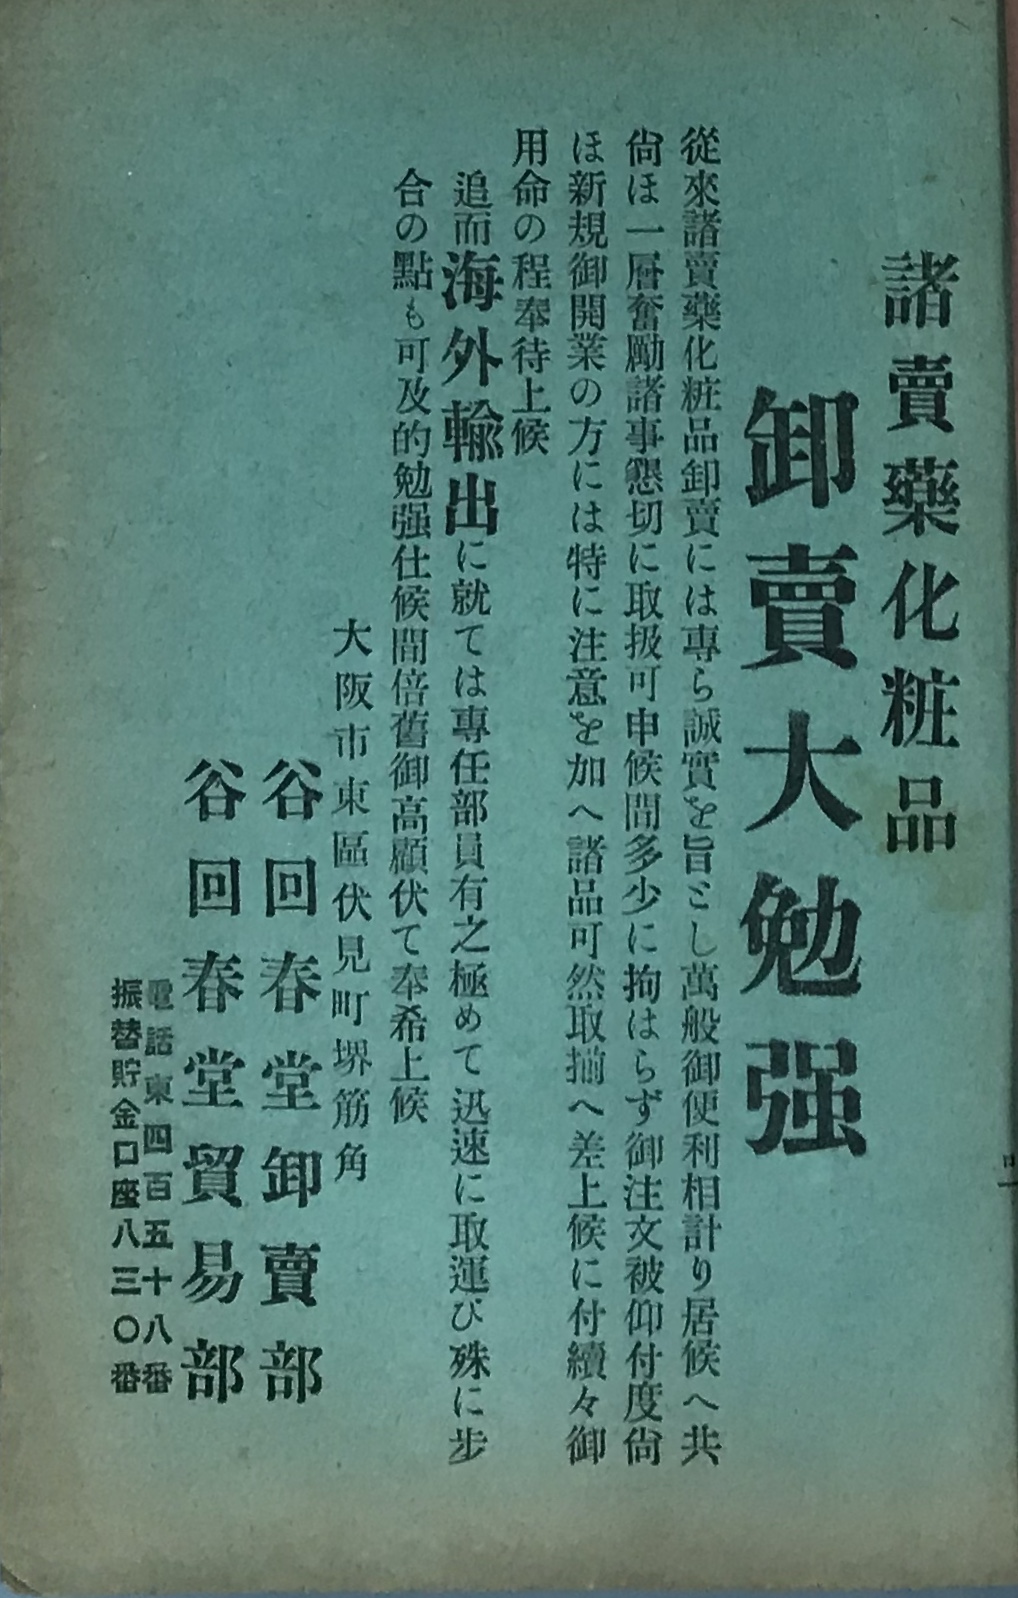 諸賣藥化粧品
卸賣大勉强
從來諸賣藥化粧品卸賣には專ら誠實を旨とし萬般御便利相計り居候へ共
尙ほ一層奮勵諸事懇切に取扱可申候間多少に拘はらず御注文被仰付度尙
ほ新規御開業の方には特に注意を加へ諸品可然取揃へ差上候に付續々御
用命の程奉待上候
追而海外輸出に就ては專任部員有之極めて迅速に取運び殊に步
合の點も可及的勉强仕候間倍舊御高顧伏て奉希上候
大阪市東區伏見町堺筋角
谷回春堂卸賣部
谷回春堂貿易部
電話東四百五十八番
振替貯金口座八三〇番